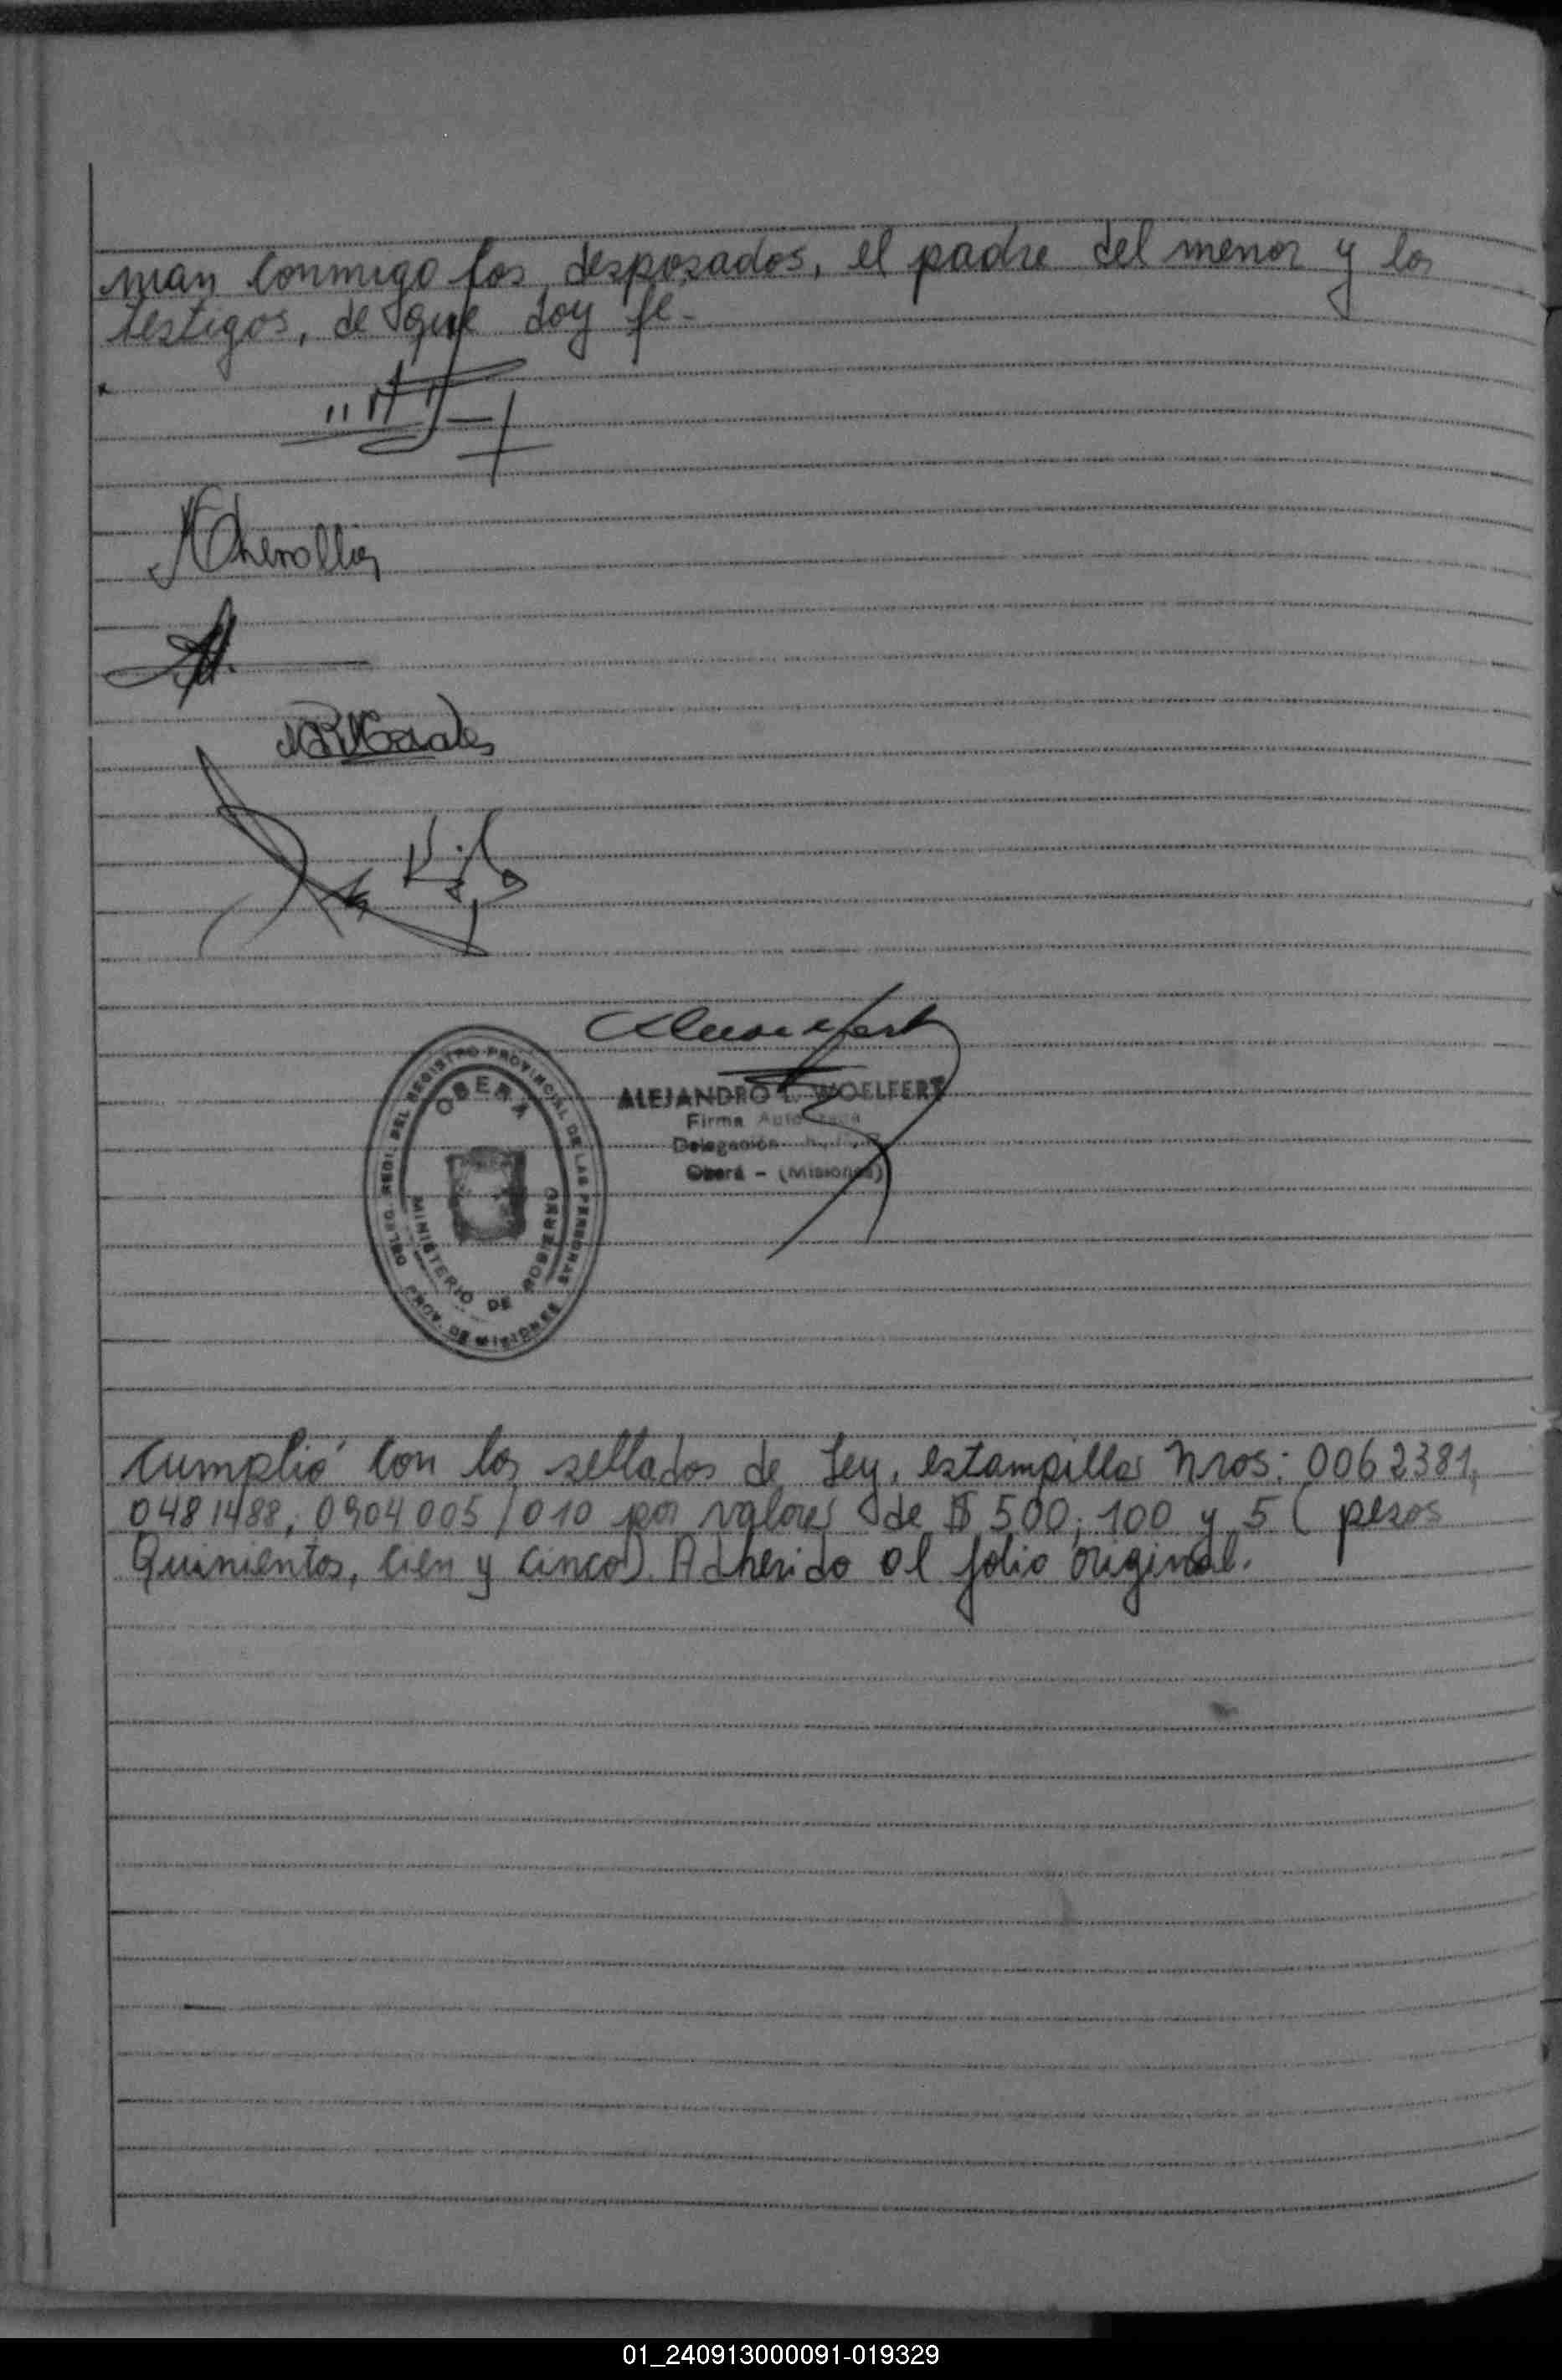 man conmigo los desposados, el padre del menor y los
testigos, de que doy fé.-
DELEG. REGI. DEL REGISTRO PROVINCIAL DE LAS PERSONAS
OBERA
MINISTERIO DE GOBIERNO
PROV. DE MISIONES
ALEJANDRO L. WOELFERT
Firma Autorizada
Delegación
Oberá - (Misiones)
Cumplió con los sellados de Ley, estampillas Nros: 0062381,
0481488, 0904005/010 por valores de $ 500; 100 y 5 ( pesos
Quinientos, cien y cinco). Adherido al folio original.
01_240913000091-019329